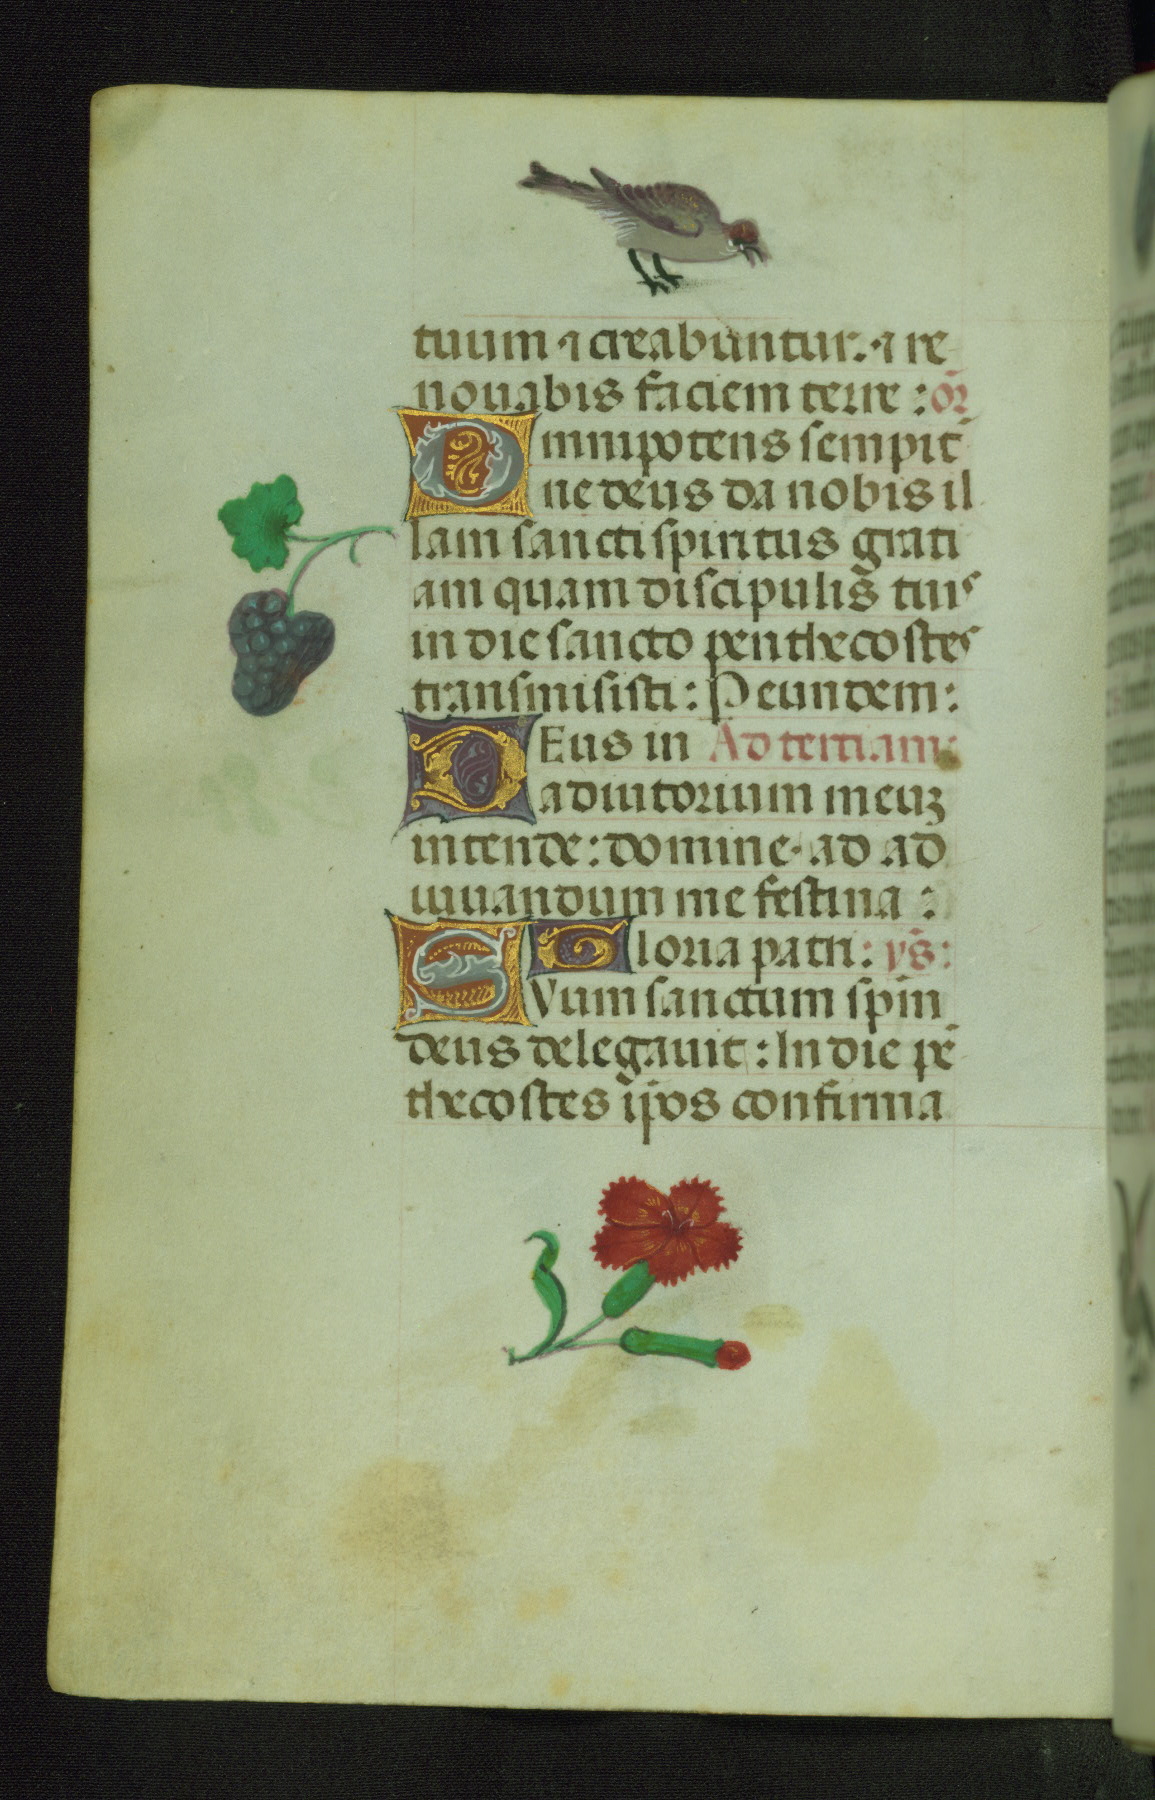 tuum ⁊ creabuntur. ⁊ re
nouabis faciem terre : or̄
Omnipotens sempit̄
ne deus da nobis il
lam sancti spiritus grati
am quam discipulis tuis
in die sancto penthecostes
transmisisti : P eundem :
DEus in Ad tertiam:
adiutorium meuꝫ
intende : domine ad ad
iuuandum me festina :
Gloria patri : ym̄s :
SVum sanctum spiri
deus delegauit : In die pē
thecostes ip̄os confirma